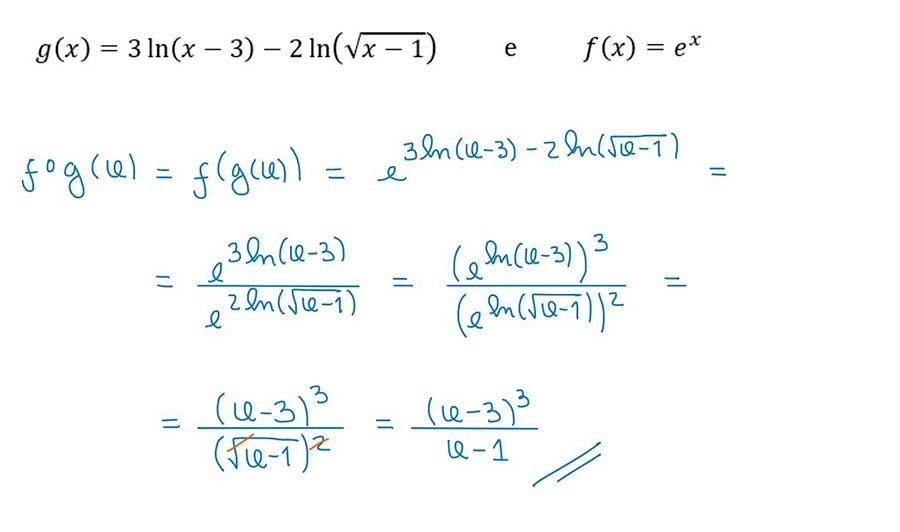 g(x) = 3 ln(x − 3) − 2 ln(√(x − 1)) e f(x) = eˣ
f∘g(x) = f(g(x)) = e^(3ln(x-3) - 2ln(√(x-1))) =
= e^(3ln(x-3)) / e^(2ln(√(x-1))) = (e^(ln(x-3)))³ / (e^(ln(√(x-1))))² =
= (x-3)³ / (√(x-1))² = (x-3)³ / (x-1)